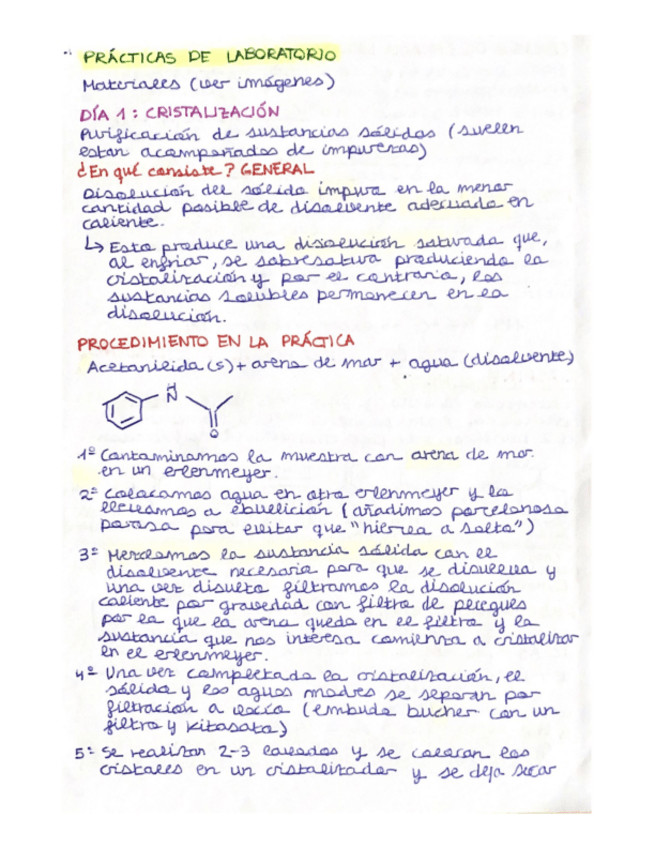 PRÁCTICAS DE LABORATORIO
Materiales (ver imágenes)
DÍA 1: CRISTALIZACIÓN
Purificación de sustancias sólidas (suelen
estar acompañadas de impurezas)
¿En qué consiste? GENERAL
Disolución del sólido impuro en la menor
cantidad posible de disolvente adecuado en
caliente.
↳ Esto produce una disolución saturada que,
al enfriar, se sobresatura produciendo la
cristalización y por el contrario, las
sustancias solubles permanecen en la
disolución.
PROCEDIMIENTO EN LA PRÁCTICA
Acetanilida (s) + arena de mar + agua (disolvente)
H
N
O
1º Contaminamos la muestra con arena de mar
en un erlenmeyer.
2º Colocamos agua en otro erlenmeyer y la
llevamos a ebullición (añadimos porcelanosa
porosa para evitar que "hierva a salto")
3º Mezclamos la sustancia sólida con el
disolvente necesario para que se disuelva y
una vez disuelto filtramos la disolución
caliente por gravedad con filtro de pliegues
por la que la arena queda en el filtro y la
sustancia que nos interesa comienza a cristalizar
en el erlenmeyer.
4º Una vez completada la cristalización, el
sólido y las aguas madres se separan por
filtración a vacío (embudo bucher con un
filtro y kitasato)
5º Se realizan 2-3 lavados y se colocan los
cristales en un cristalizador y se deja secar